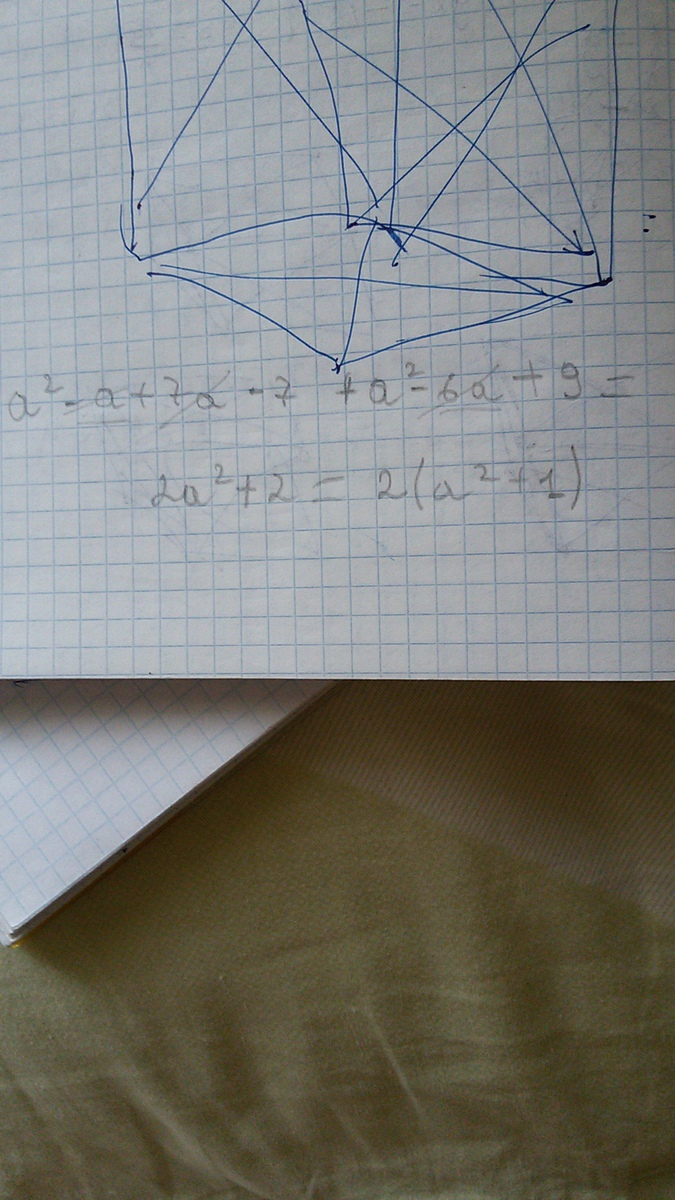 a² - a + 7a - 7 + a² - 6a + 9 =
2a² + 2 = 2(a² + 1)